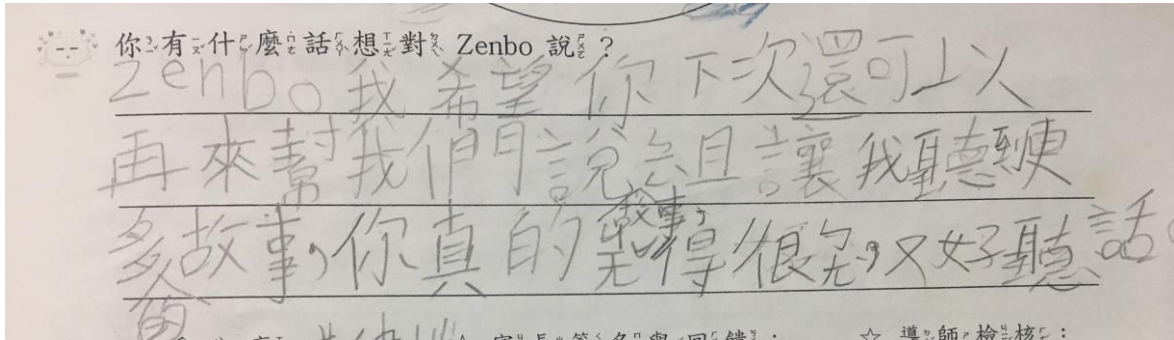 你有什麼話想對 Zenbo 說?
Zenbo我希望你下次還可以
再來幫我們說 且讓我聽到更
多故事,你真的 故事,得很 ,又好聽話
家長簽名與回饋: ☆ 導師檢核: